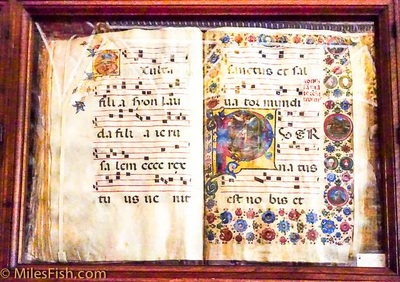 xulta
fili a syon lau
da fili a ieru
salem ecce rex
tu us ve nit
sanctus et sal
ua tor mundi
P
na tus
est no bis et
© MilesFish.com